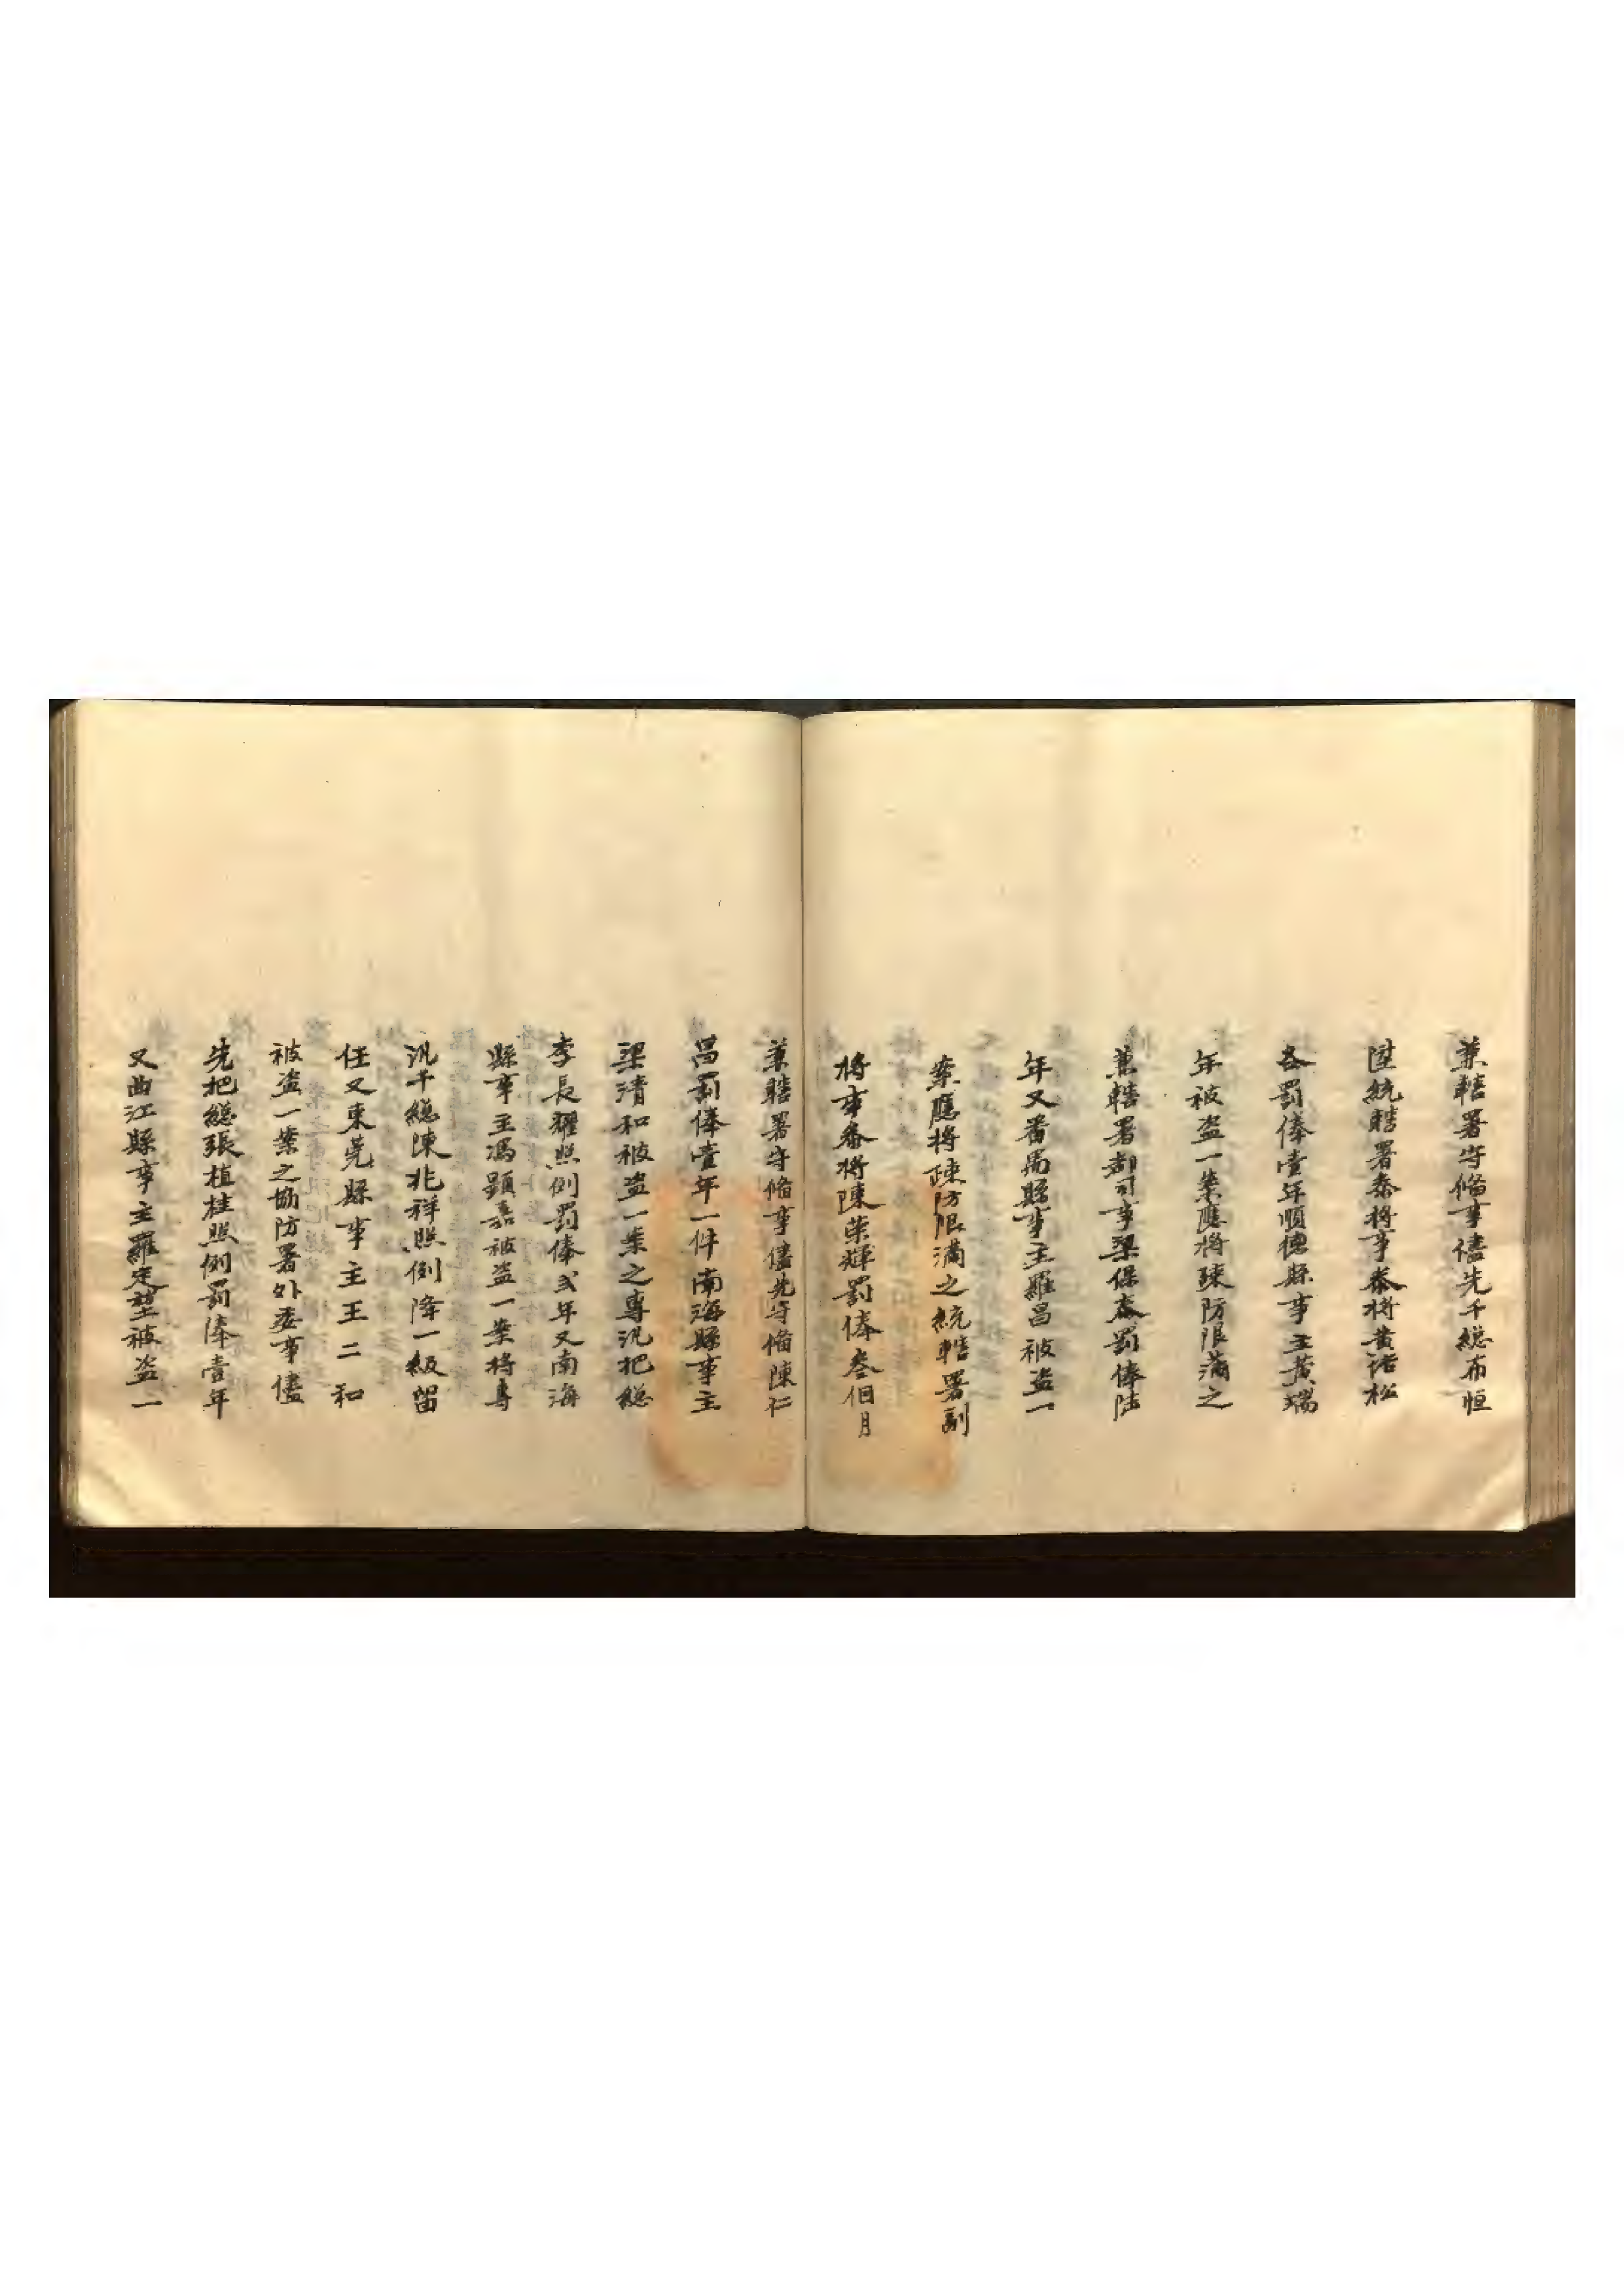 兼轄署守俻事儘先千總布恒
陞統轄署叅將事叅將黃浩松
各罰俸壹年順德縣事主黃瑞
年被盗一案應將疎防限滿之
兼轄署都司事梁保泰罰俸陸
年又番禺縣事主羅昌被盗一
案應將疎防限滿之統轄署副
將事叅將陳荣輝罰俸叁個月
兼轄署守俻事儘先守俻陳仁
昌罰俸壹年一件南海縣事主
梁清和被盗一案之專汛把總
李長耀照例罰俸弍年又南海
縣事主馮顕嘉被盗一案將專
汛千總陳兆祥照例降一級留
任又東莞縣事主王二和
被盗一案之協防署外委事儘
先把總張植桂照例罰俸壹年
又曲江縣事主羅定堃被盗一